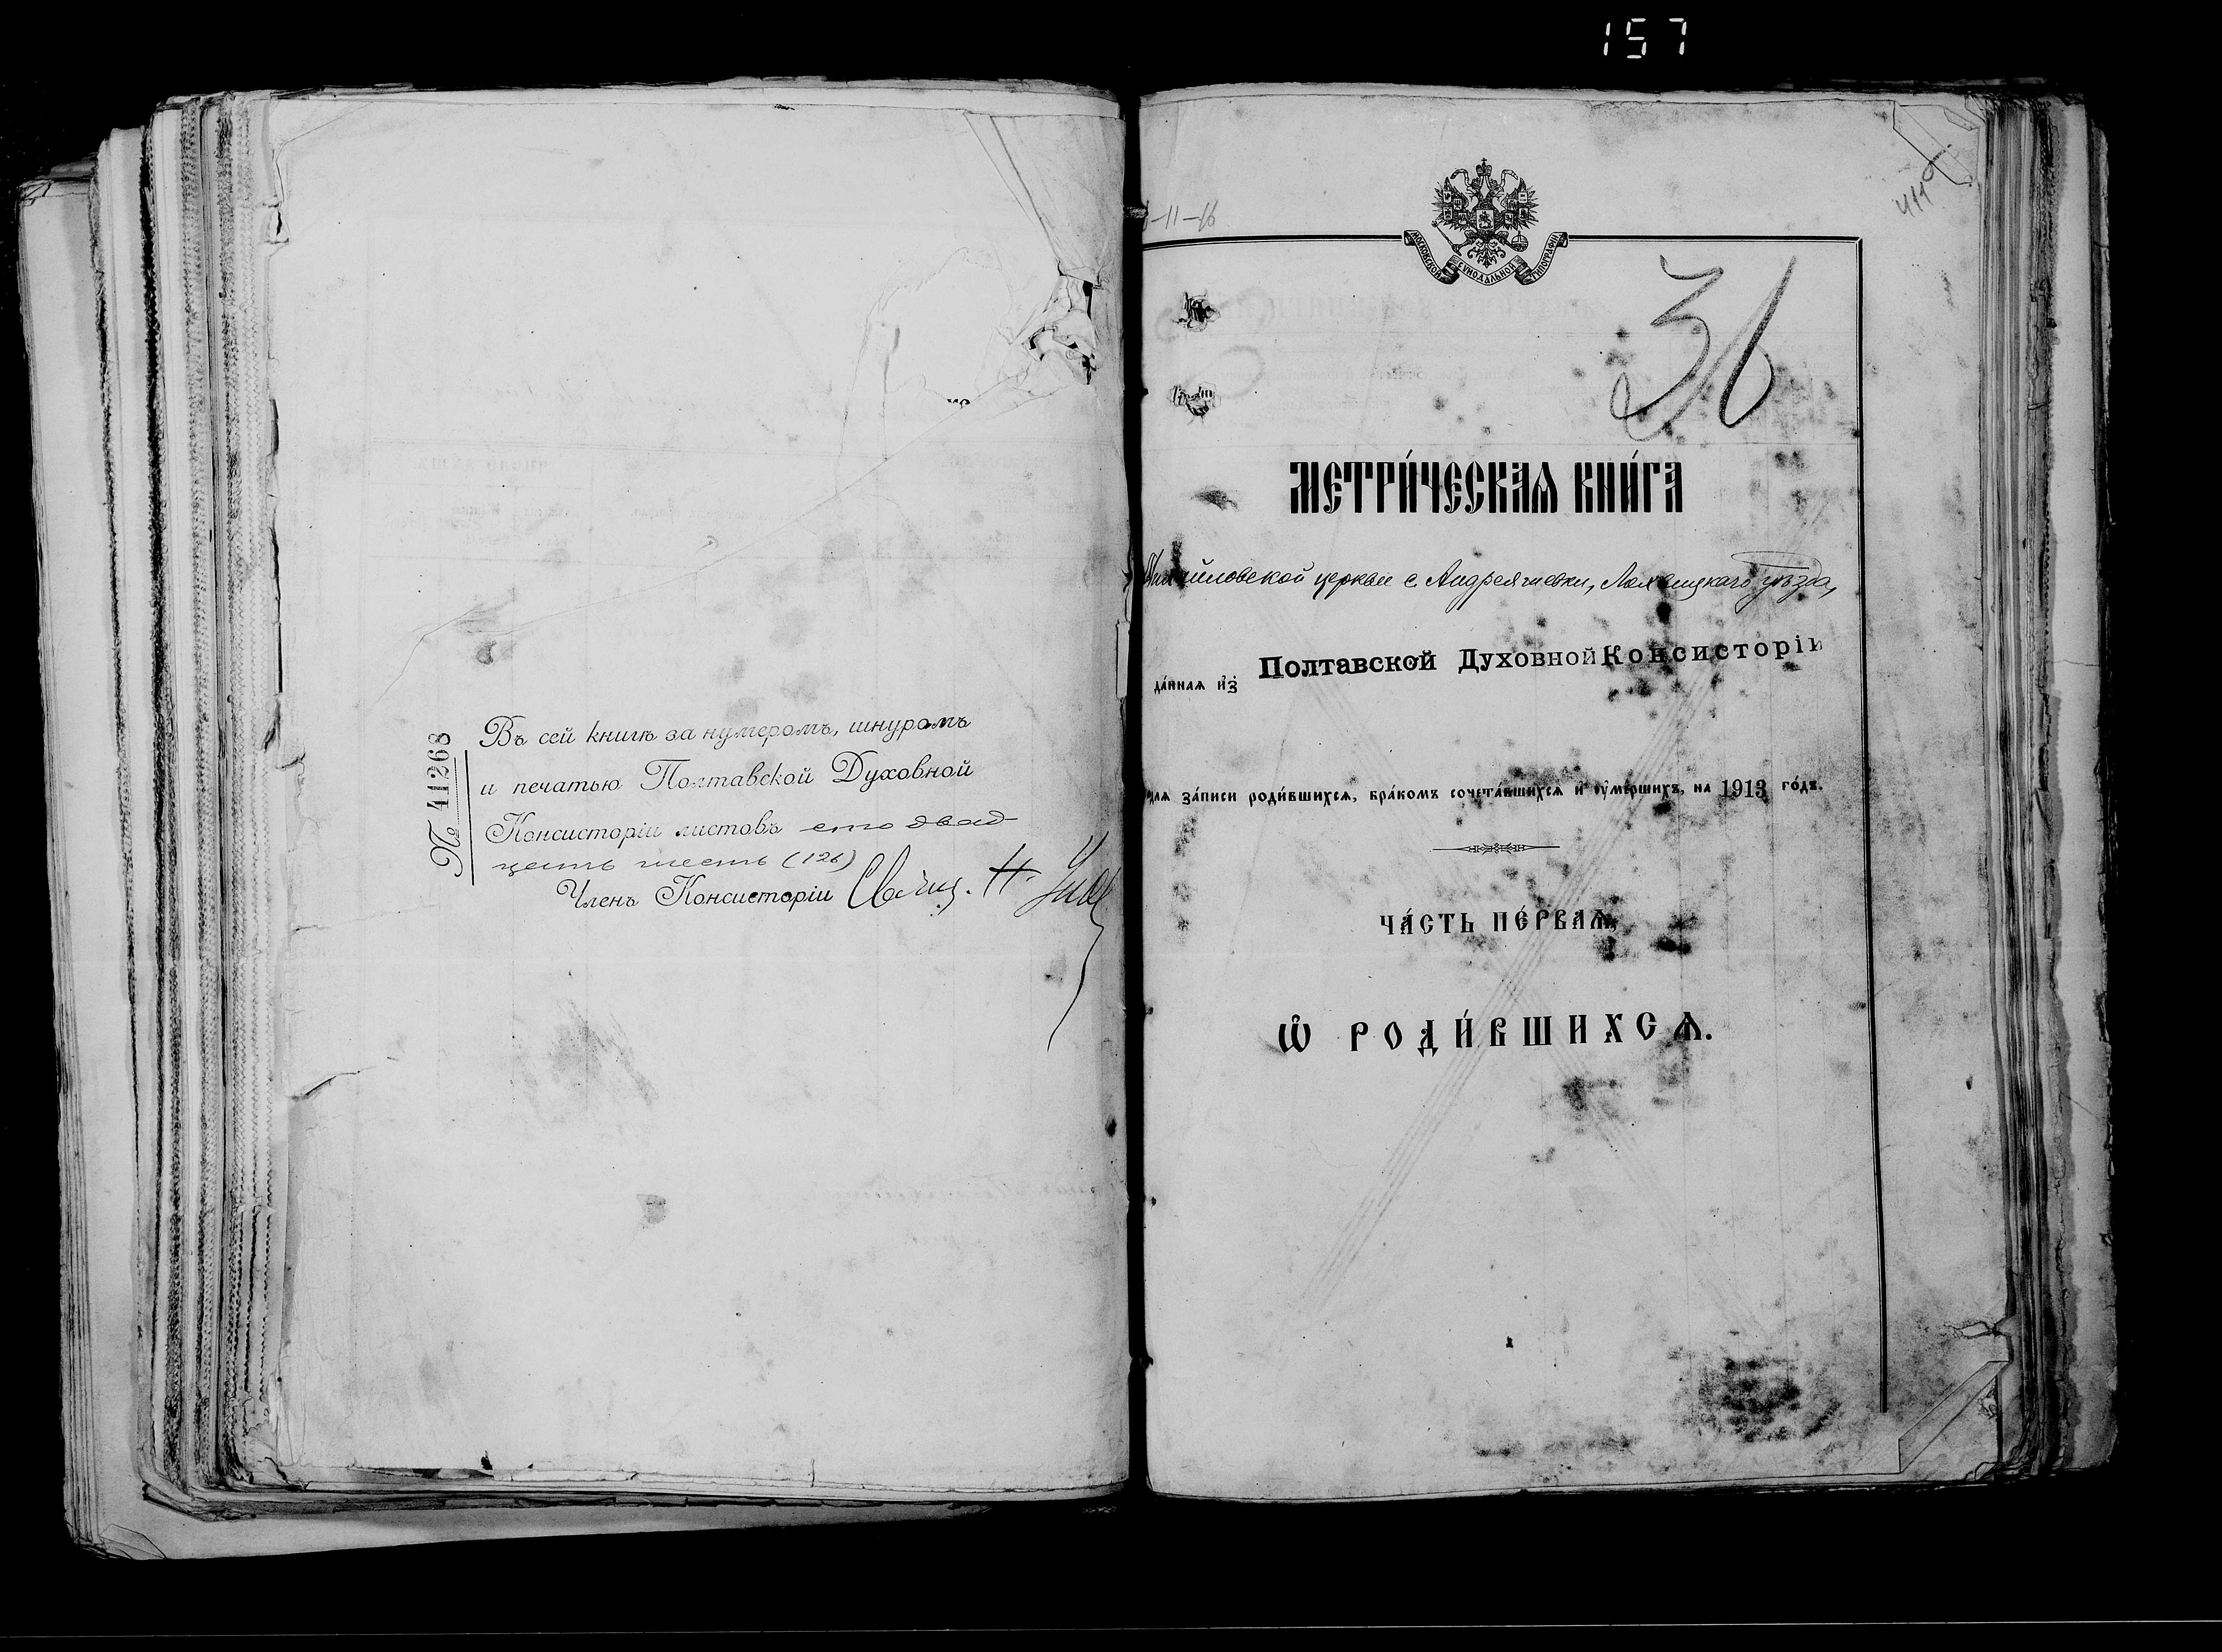 157
№ 41268
Въ сей книгѣ за нумеромъ, шнуромъ
и печатью Полтавской Духовной
Консисторіи листовъ сто двад-
цать шесть (126)
Членъ Консисторіи Свящ. Н.
-11-16
МОСКОВСКОЙ СѴНОДАЛЬНОЙ ТИПОГРАФІИ
36
МЕТРИ́ЧЕСКАѦ КНИ́ГА
Михайловской церкви с. Андреяшевки, Лохвицкаго уѣзда,
да́ннаѧ и҆зъ Полтавской Духовной Консисторіи
для за́писи роди́вшихсѧ, бра́комъ сочета́вшихсѧ и҆ ᲂу҆ме́ршихъ, на 1913 го́дъ.
ЧА́СТЬ ПЕ́РВАѦ,
Ѽ РОДИ́ВШИХСѦ.